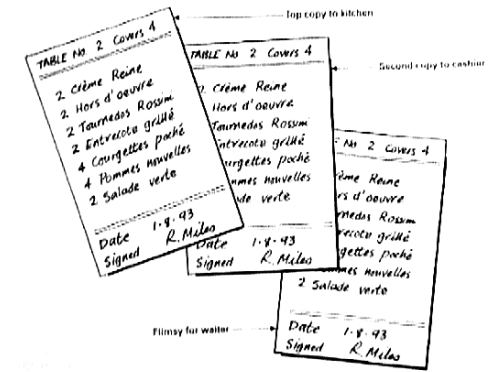 Top copy to kitchen
TABLE No. 2 Covers 4
2 Crème Reine
2 Hors d'oeuvre
2 Tournedos Rossini
2 Entrecote grillé
4 Courgettes poché
4 Pommes nouvelles
2 Salade verte
Date 1·8·93
Signed R. Miles
Second copy to cashier
2 Covers 4
2 Crème Reine
Hors d'oeuvre
Tournedos Rossini
Entrecote grillé
urgettes poché
mmes nouvelles
de verte
Date 1·8·93
Signed R. Miles
No 2 Covers 4
ème Reine
rs d'oeuvre
rnedos Rossini
recote grillé
gettes poché
mmes nouvelles
2 Salade verte
Date 1·8·93
Signed R. Miles
Flimsy for waiter